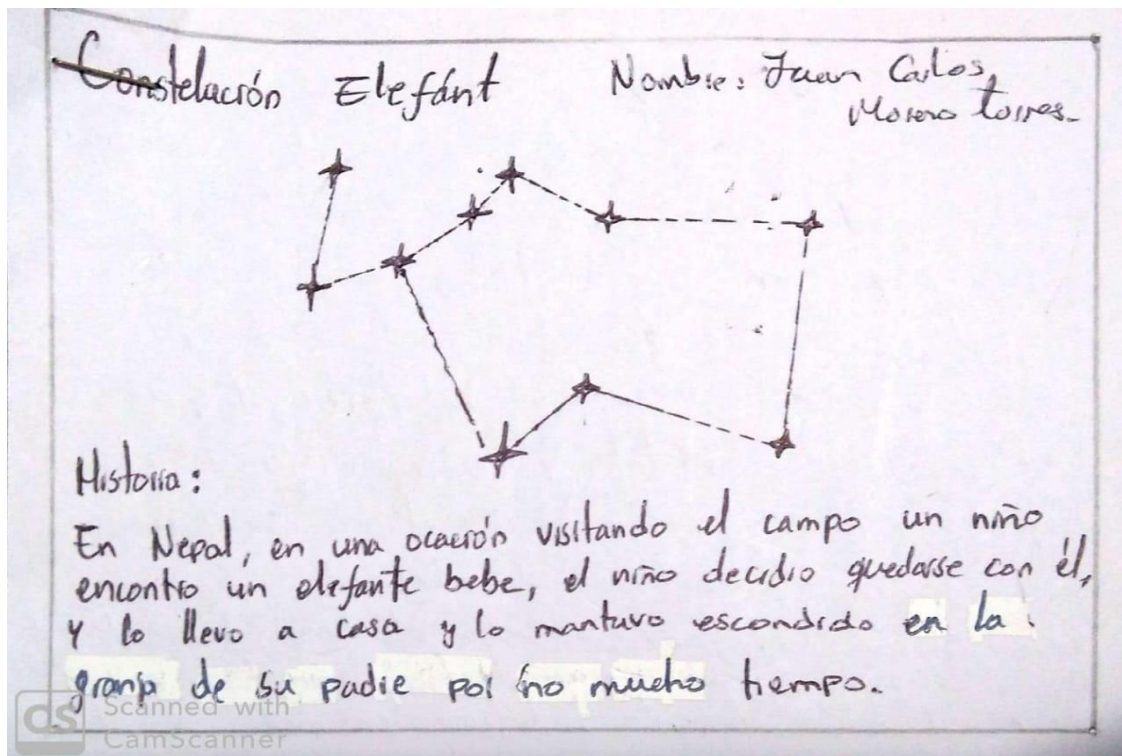 Constelación Elefánt
Nombre: Juan Carlos
Moreno Torres.
Historia:
En Nepal, en una ocación visitando el campo un niño
encontro un elefante bebe, el niño decidio quedarse con él,
y lo llevo a casa y lo mantuvo escondido en la
granja de su padre por no mucho tiempo.
CS Scanned with
CamScanner